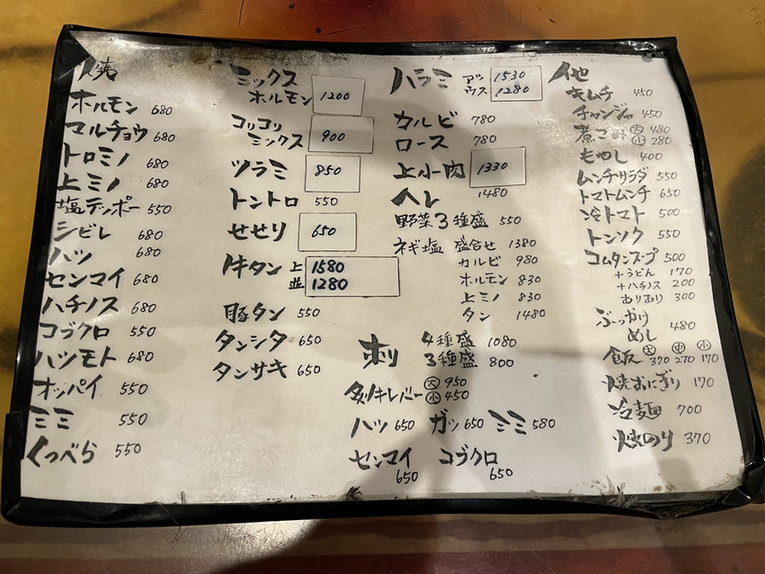 焼
ホルモン 680
マルチョウ 680
トロミノ 680
上ミノ 680
塩テッポー 550
シビレ 680
ハツ 680
センマイ 680
ハチノス 680
コブクロ 550
ハツモト 680
オッパイ 550
ミミ 550
くつべら 550
ミックス
ホルモン 1200
コリコリ
ミックス 900
ツラミ 850
トントロ 550
せせり 650
牛タン 上 1580
並 1280
豚タン 550
タンシタ 650
タンサキ 650
ハラミ アツ 1530
ウス 1280
カルビ 780
ロース 780
上小肉 1330
ヘレ 1480
野菜3種盛 550
ネギ塩 盛合せ 1380
カルビ 980
ホルモン 830
上ミノ 830
タン 1480
4種盛 1080
3種盛 800
キレバー 大 950
小 450
ハツ 650 ガツ 650 ミミ 580
センマイ 650 コブクロ 650
他
キムチ 450
チャンジャ 450
大 480
小 280
もやし 400
ムンチサラダ 550
トマトムンチ 650
冷トマト 500
トンソク 550
コムタンスープ 500
+うどん 170
+ハチノス 200
おりおり 300
ぶっかけ
めし 480
飯 大 370 中 270 小 170
焼おにぎり 170
冷麺 700
のり 370